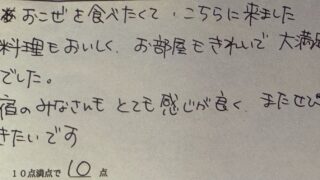 おこぜを食べたくて、こちらに来ました
料理もおいしく、お部屋もきれいで大満足
でした。
宿のみなさんも とても感じが良く、またぜひ
きたいです
10点満点で 10 点